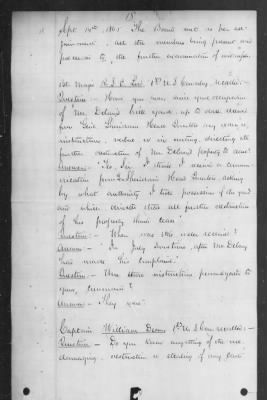 Sept 14th, 1865 The Board met to be ad-
journment, all the members being present and
proceeded to the further examination of witnesses.
Bt. Major R. S. C. Lord 1st U S Cavalry, recalled:-
Question:- Have you ever, since your occupation
of Mr Delany's brick yard, up to
from Genl. Sheridans Head Quarters any orders,
instructions, or in writing, directing the
further destruction of Mr Delany's property to cease?
Answer:- "No, Sir. I think I received a commu-
nication from Gn Sheridans Head Quarters, asking
by what authority I took possession of the yard
and which directed that all further destruction
of his property should cease."
Question:- When was this order received?
Answer:- "In July sometime, after Mr Delany
had made his complaint."
Question:- Were these instructions promulgated to
your command?
Answer:- They were.
Captain William Dean 1st U S Cav recalled:-
Question:- Do you know anything of the
damaging, destruction or stealing of any